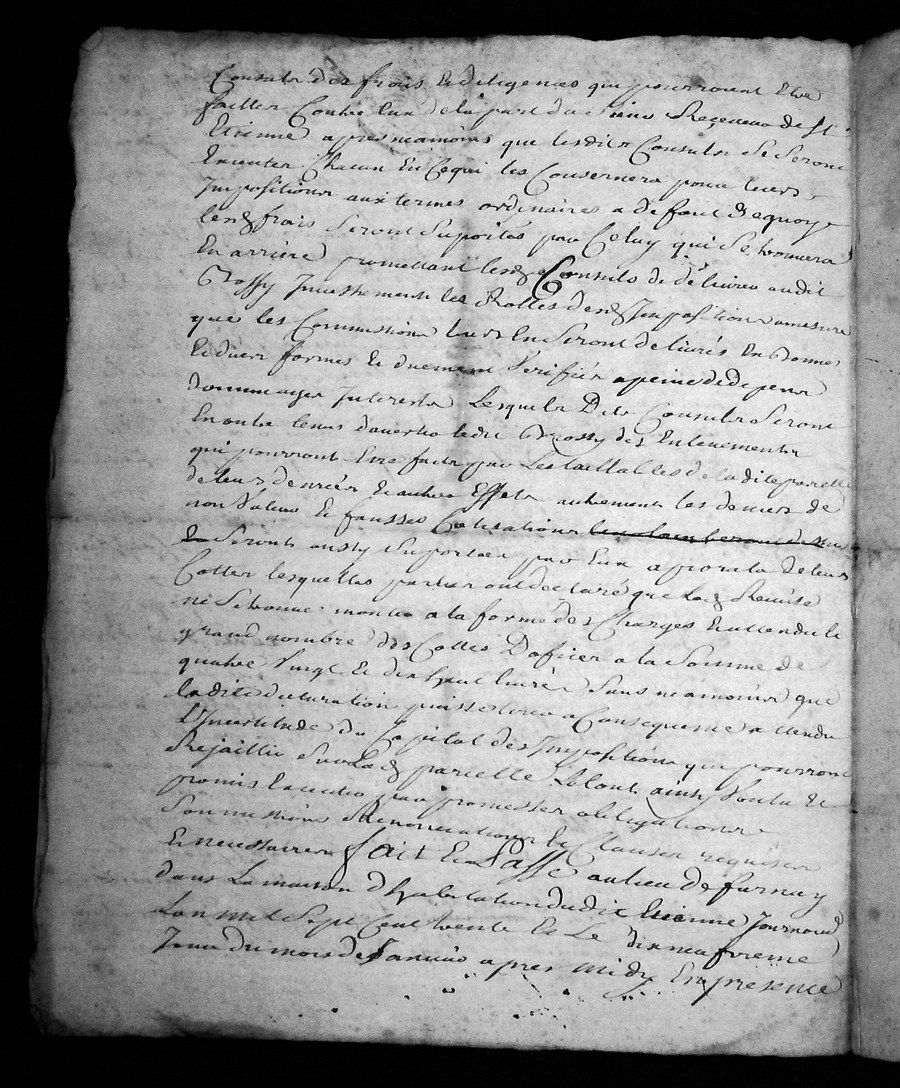 Consuls des frais & diligences qui pourront Etre
faittes Contre Eux de la part du Sieur Receveur de St
Etienne apres neamoins que lesdits Consuls Se Seront
Executer Chacun En Ce qui les Consernera pour leurs
Impositions aux termes ordinaires a defaut dequoy
lesd frais Seront Suportés par Celuy qui Se trouvera
En arriere promettant lesd Consuls de delivrer audit
Grossy Incessament les Rolles desd Impositions amesure
que les Commissions leurs En Seront delivrés En bonnes
Et dues formes Et duement Verifiés apeine de depens
dommages Interests Lesquels Dits Consuls Seront
En outre tenus davertir ledit Grossy des Enlevements
qui pourront Etre faits par Les taillables de la dite parcelle
de leurs denrées Et autres Effets autrement les deniers de
non Valeur Et fausses Cotisations
Seront aussy Suportés par Eux a prorata de leurs
Cottes lesquelles parties ont declaré que lad Remise
ne Se trouve monter a la forme des Charges Et attendu le
grand nombre des Cottes Dofficier a la Somme de
quatre Vingt Et dix huit livres Sans neamoins que
ladite declaration puisse tirer a Consequence attendu
L'Incertitude du Capital des Impositions qui pourront
Rejaillir Sur Lad parcelle Le tout ainsy Voulu Et
promis Executer par promesses obligations
Soumissions Renonciations & Clauses requises
Et necessaires fait Et Passé au lieu de furnay
dans La maison dhabitation dudit Etienne Journoud
Lan mil Sept Cent trente Et Le dix neufvieme
Jour du mois de Janvier apres midy En presence